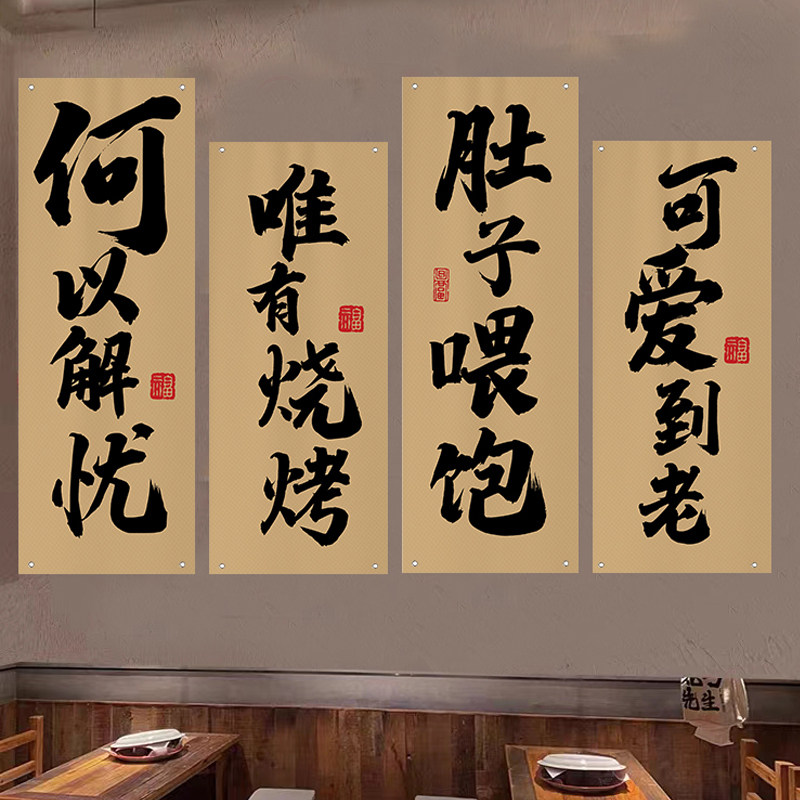 何以解忧
唯有烧烤
肚子喂饱
可爱到老
福
福
福
先生